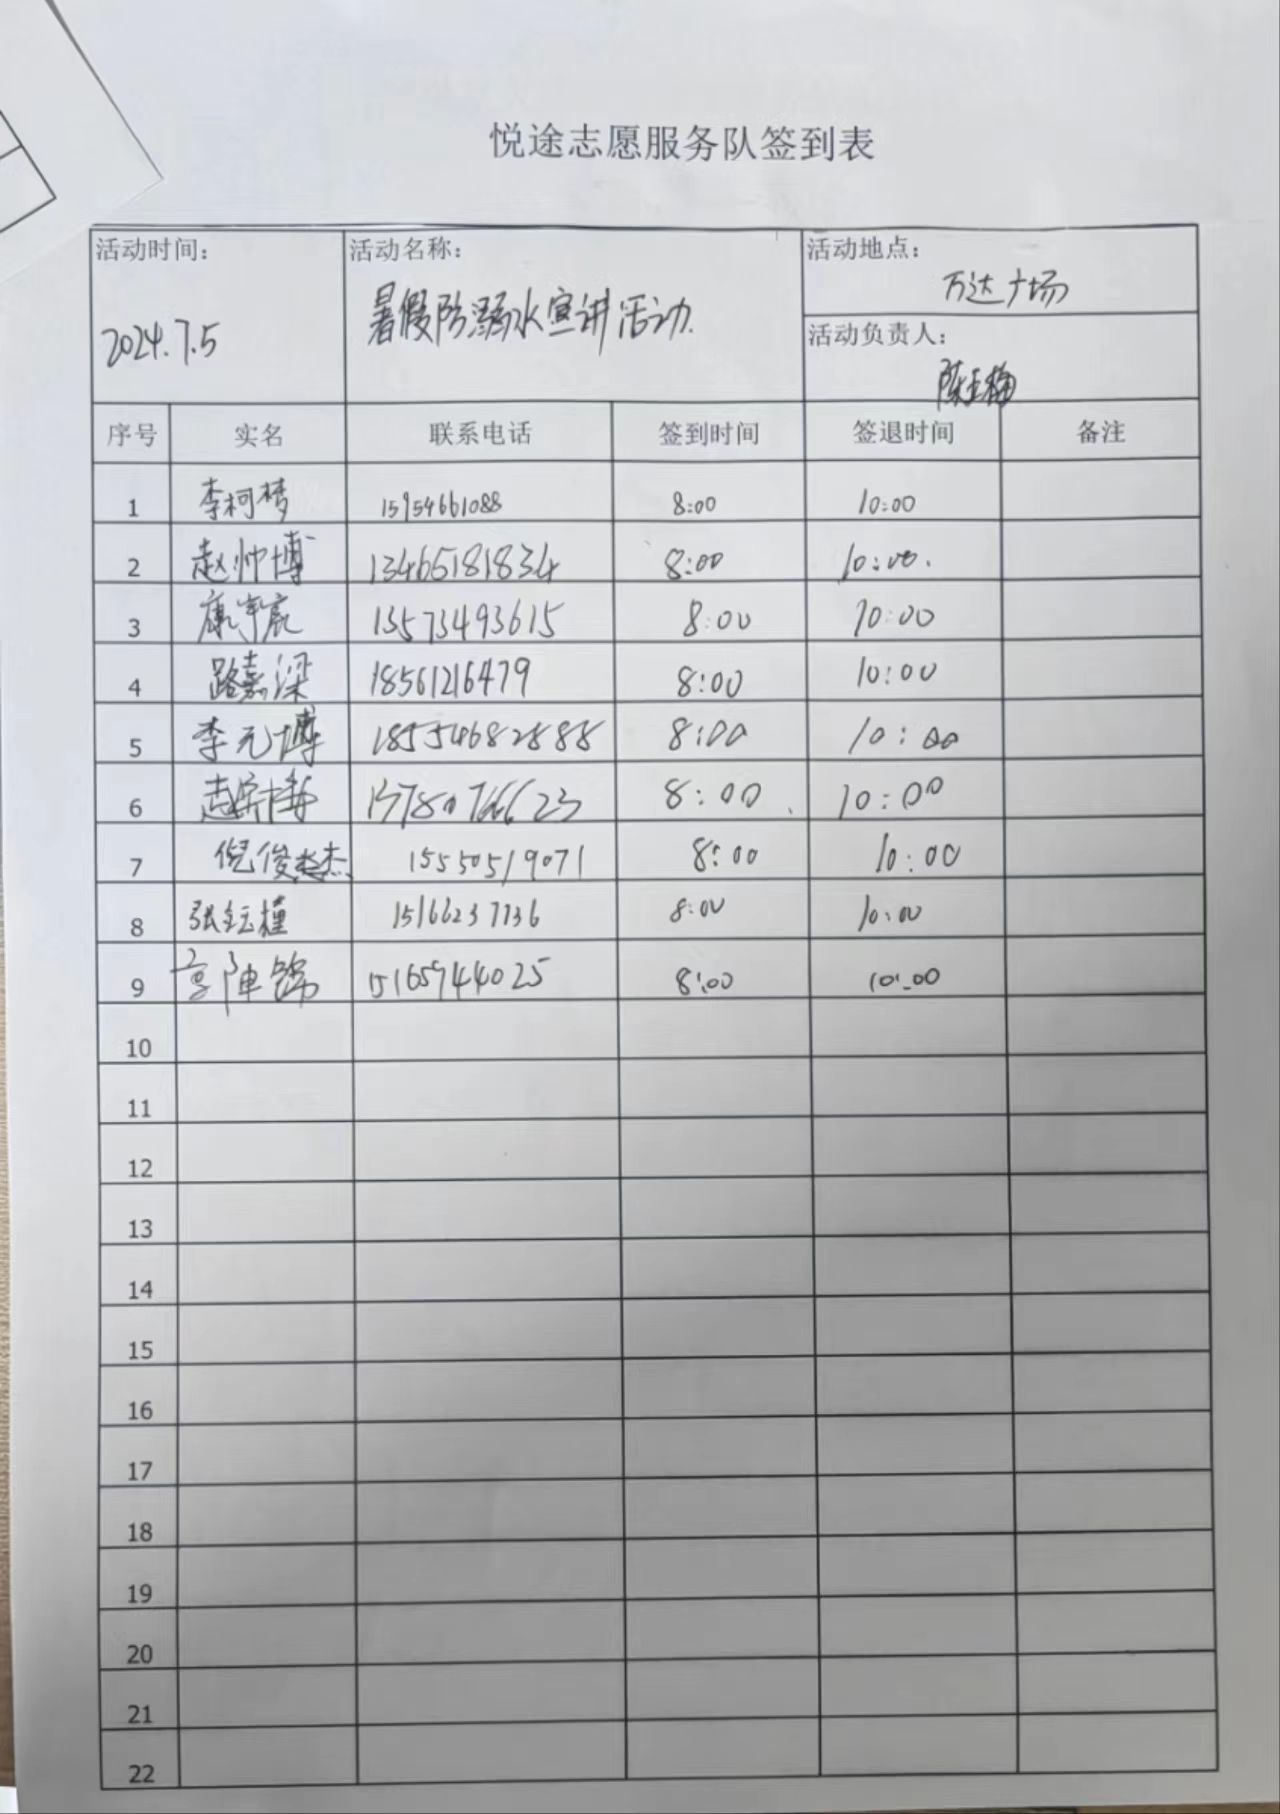 悦途志愿服务队签到表
活动时间: 活动名称: 活动地点:
万达广场
2024.7.5 暑假防溺水宣讲活动
活动负责人:
陈玉梅
序号 实名 联系电话 签到时间 签退时间 备注
1 李柯梦 15954661088 8:00 10:00
2 赵帅博 13465181834 8:00 10:00.
3 康宇宸 13573493615 8:00 10:00
4 路嘉深 18561216479 8:00 10:00
5 李元博 18554682888 8:00 10:00
6 13780766623 8:00 10:00
7 倪俊杰 15550519071 8:00 10:00
8 张钰槿 15166237736 8:00 10:00
9 15165944025 8:00 10:00
10
11
12
13
14
15
16
17
18
19
20
21
22